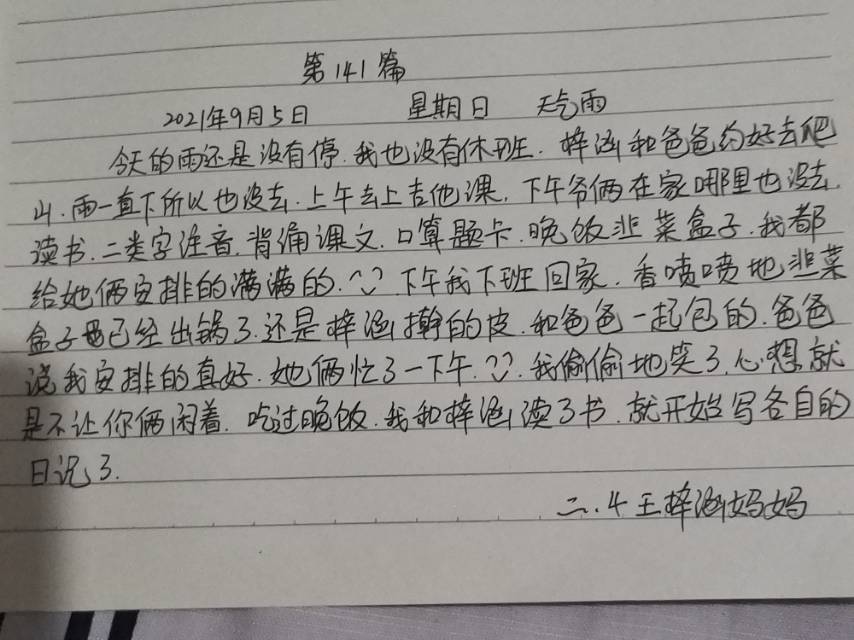 第141篇
2021年9月5日 星期日 天气雨
今天的雨还是没有停.我也没有休班.梓涵和爸爸约好去爬
山.雨一直下所以也没去.上午去上吉他课.下午爷俩在家哪里也没去.
读书.二类字注音.背诵课文.口算题卡.晚饭韭菜盒子.我都
给她俩安排的满满的.^◡^下午我下班回家.香喷喷地韭菜
盒子也已经出锅了.还是梓涵擀的皮.和爸爸一起包的.爸爸
说我安排的真好.她俩忙了一下午.^◡^.我偷偷地笑了.心想就
是不让你俩闲着.吃过晚饭.我和梓涵读了书.就开始写各自的
日记了.
二.4王梓涵妈妈